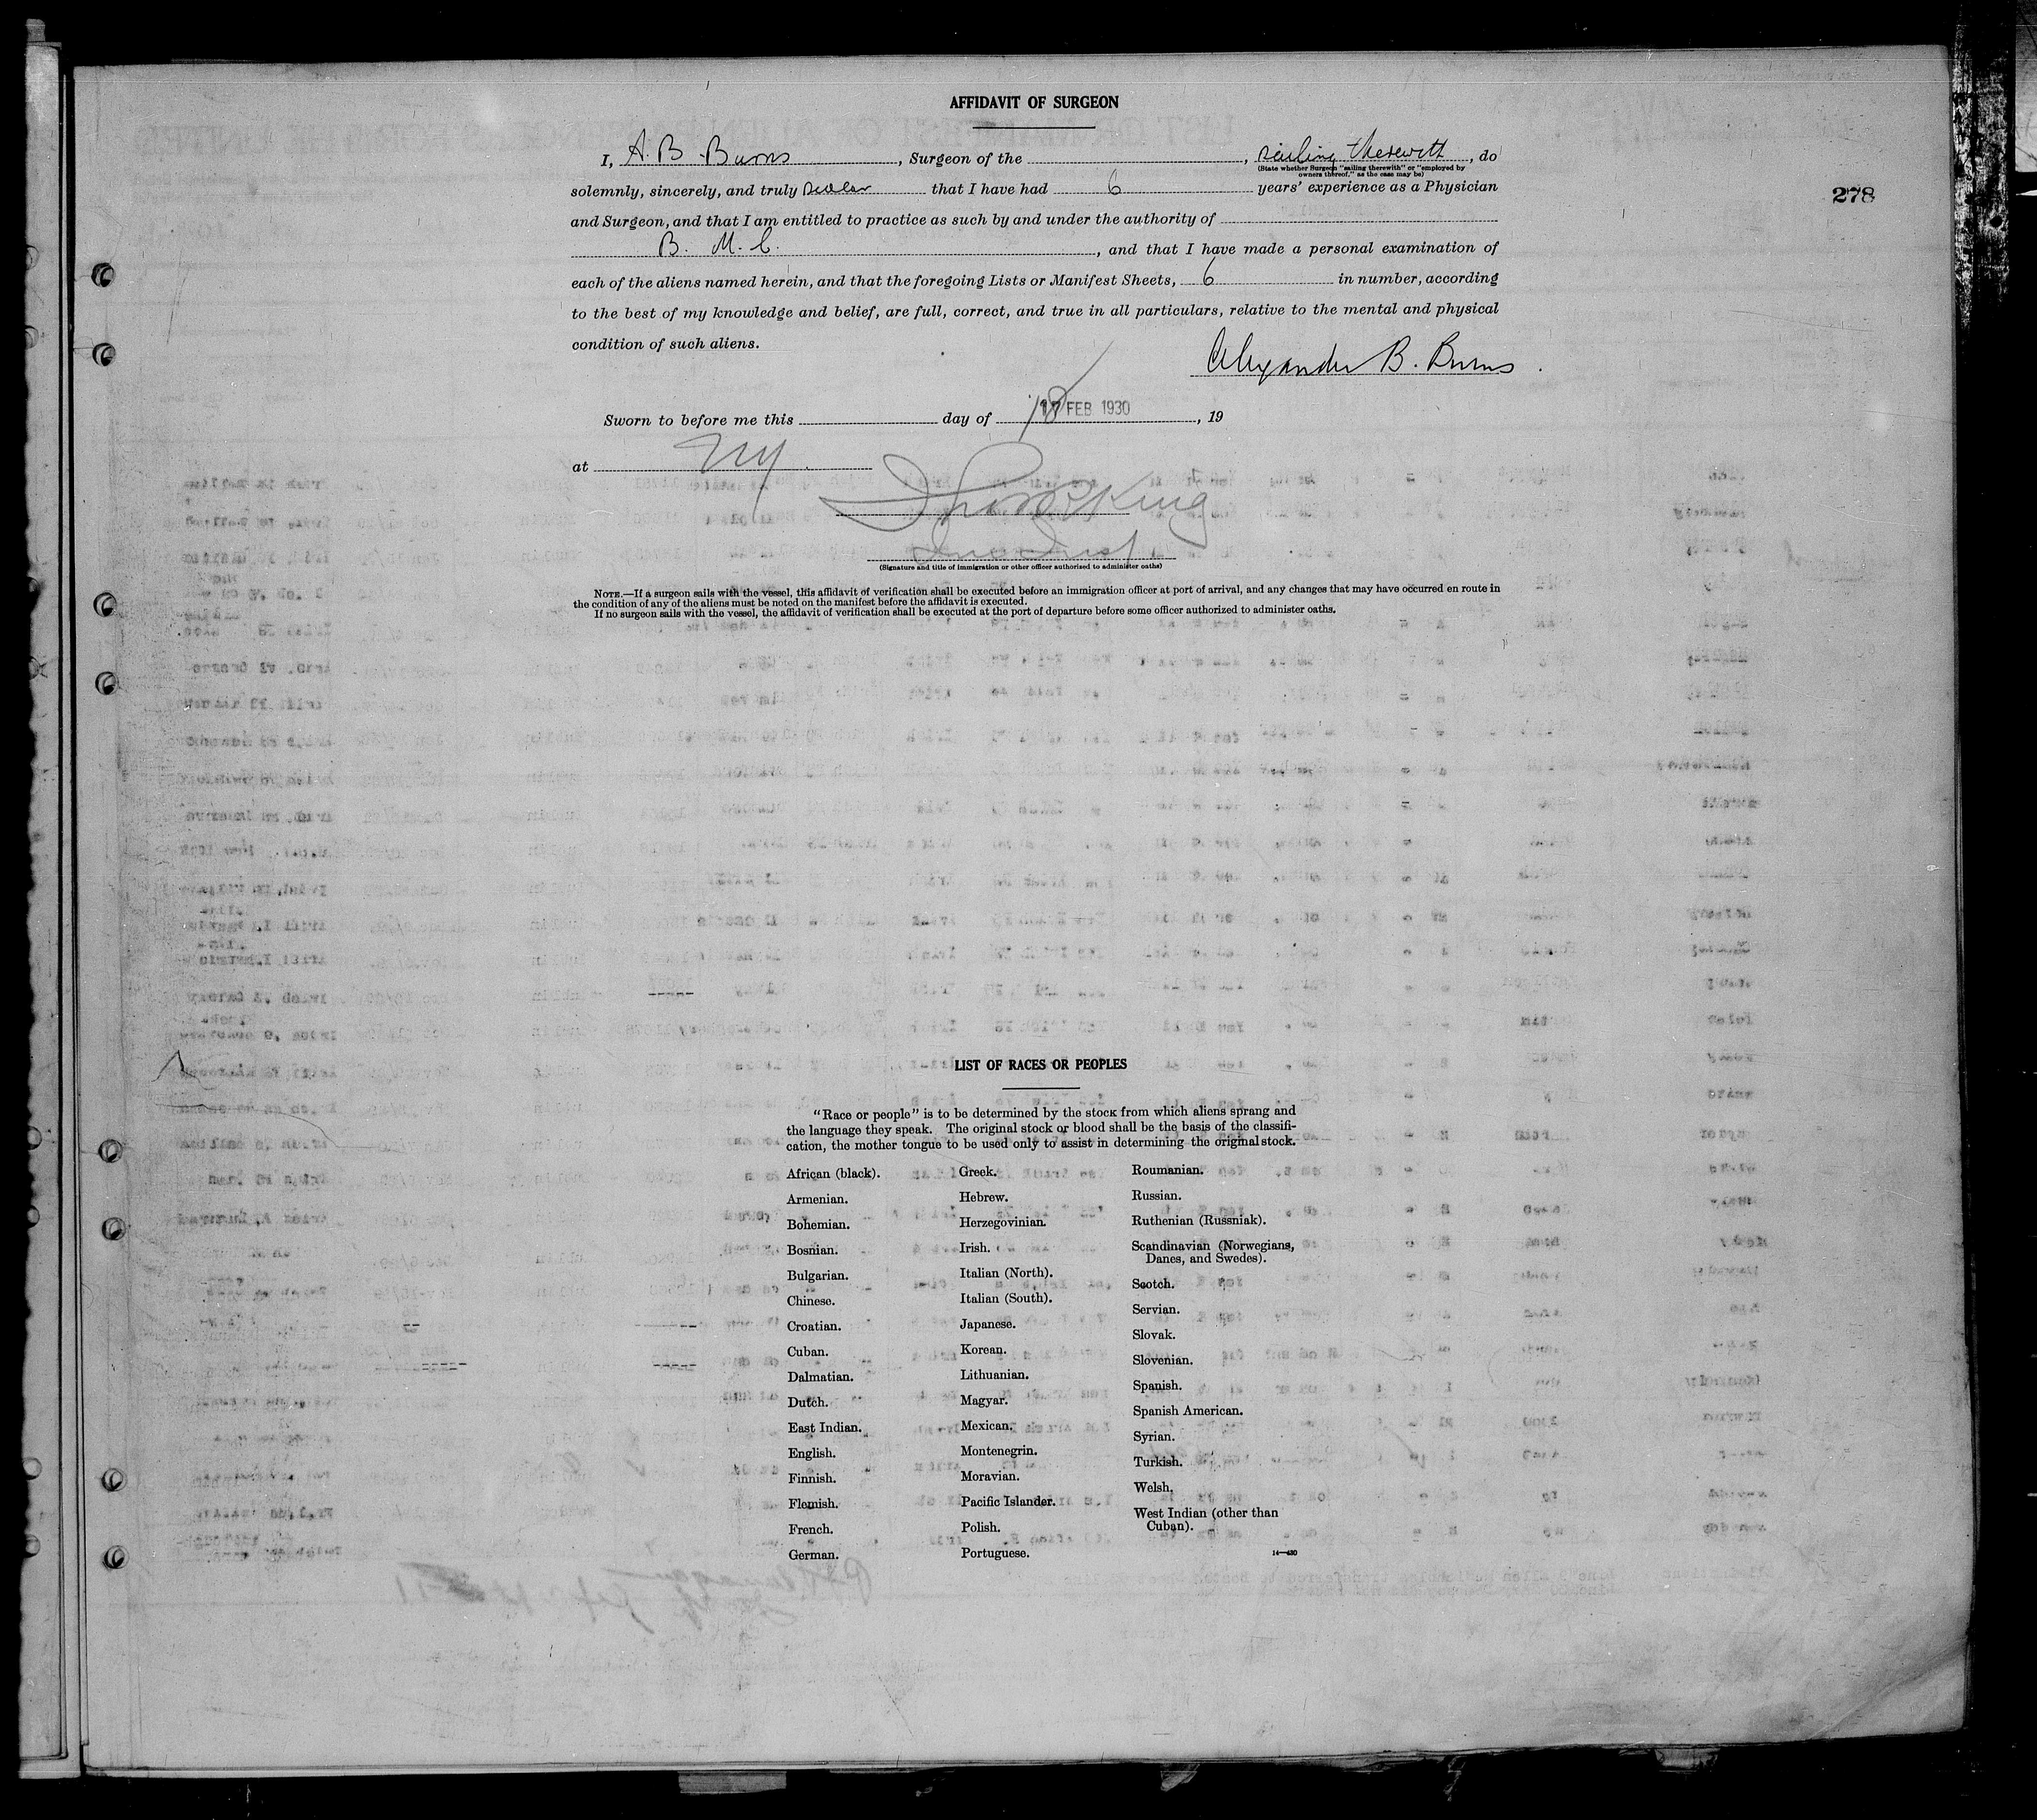 AFFIDAVIT OF SURGEON
I, A. B. Burns, Surgeon of the , sailing therewith, do
(State whether Surgeon "sailing therewith" or "employed by
owners thereof," as the case may be)
solemnly, sincerely, and truly that I have had 6 years' experience as a Physician
278
and Surgeon, and that I am entitled to practice as such by and under the authority of
B. M. C. , and that I have made a personal examination of
each of the aliens named herein, and that the foregoing Lists or Manifest Sheets, 6 in number, according
to the best of my knowledge and belief, are full, correct, and true in all particulars, relative to the mental and physical
condition of such aliens.
Alexander B. Burns.
Sworn to before me this day of 18 FEB 1930, 19
at NY.
King
(Signature and title of immigration or other officer authorized to administer oaths)
NOTE.—If a surgeon sails with the vessel, this affidavit of verification shall be executed before an immigration officer at port of arrival, and any changes that may have occurred en route in
the condition of any of the aliens must be noted on the manifest before the affidavit is executed.
If no surgeon sails with the vessel, the affidavit of verification shall be executed at the port of departure before some officer authorized to administer oaths.
LIST OF RACES OR PEOPLES
"Race or people" is to be determined by the stock from which aliens sprang and
the language they speak. The original stock or blood shall be the basis of the classifi-
cation, the mother tongue to be used only to assist in determining the original stock.
African (black).
Armenian.
Bohemian.
Bosnian.
Bulgarian.
Chinese.
Croatian.
Cuban.
Dalmatian.
Dutch.
East Indian.
English.
Finnish.
Flemish.
French.
German.
Greek.
Hebrew.
Herzegovinian.
Irish.
Italian (North).
Italian (South).
Japanese.
Korean.
Lithuanian.
Magyar.
Mexican.
Montenegrin.
Moravian.
Pacific Islander.
Polish.
Portuguese.
Roumanian.
Russian.
Ruthenian (Russniak).
Scandinavian (Norwegians,
Danes, and Swedes).
Scotch.
Servian.
Slovak.
Slovenian.
Spanish.
Spanish American.
Syrian.
Turkish.
Welsh.
West Indian (other than
Cuban).
14—430